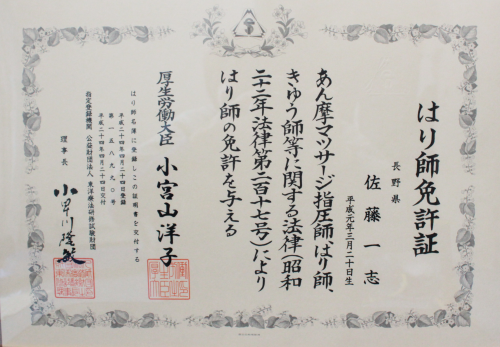 はり師免許証
長野県
佐藤一志
平成元年三月二十日生
あん摩マツサージ指圧師、はり師、
きゆう師等に関する法律(昭和
二十二年法律第二百十七号)により
はり師の免許を与える
厚生労働大臣 小宮山洋子
はり師名簿に登録しこの証明書を交付する
平成二十四年四月二十四日登録
第一五八九九〇号
平成二十四年四月二十四日交付
指定登録機関 公益財団法人 東洋療法研修試験財団
理事長